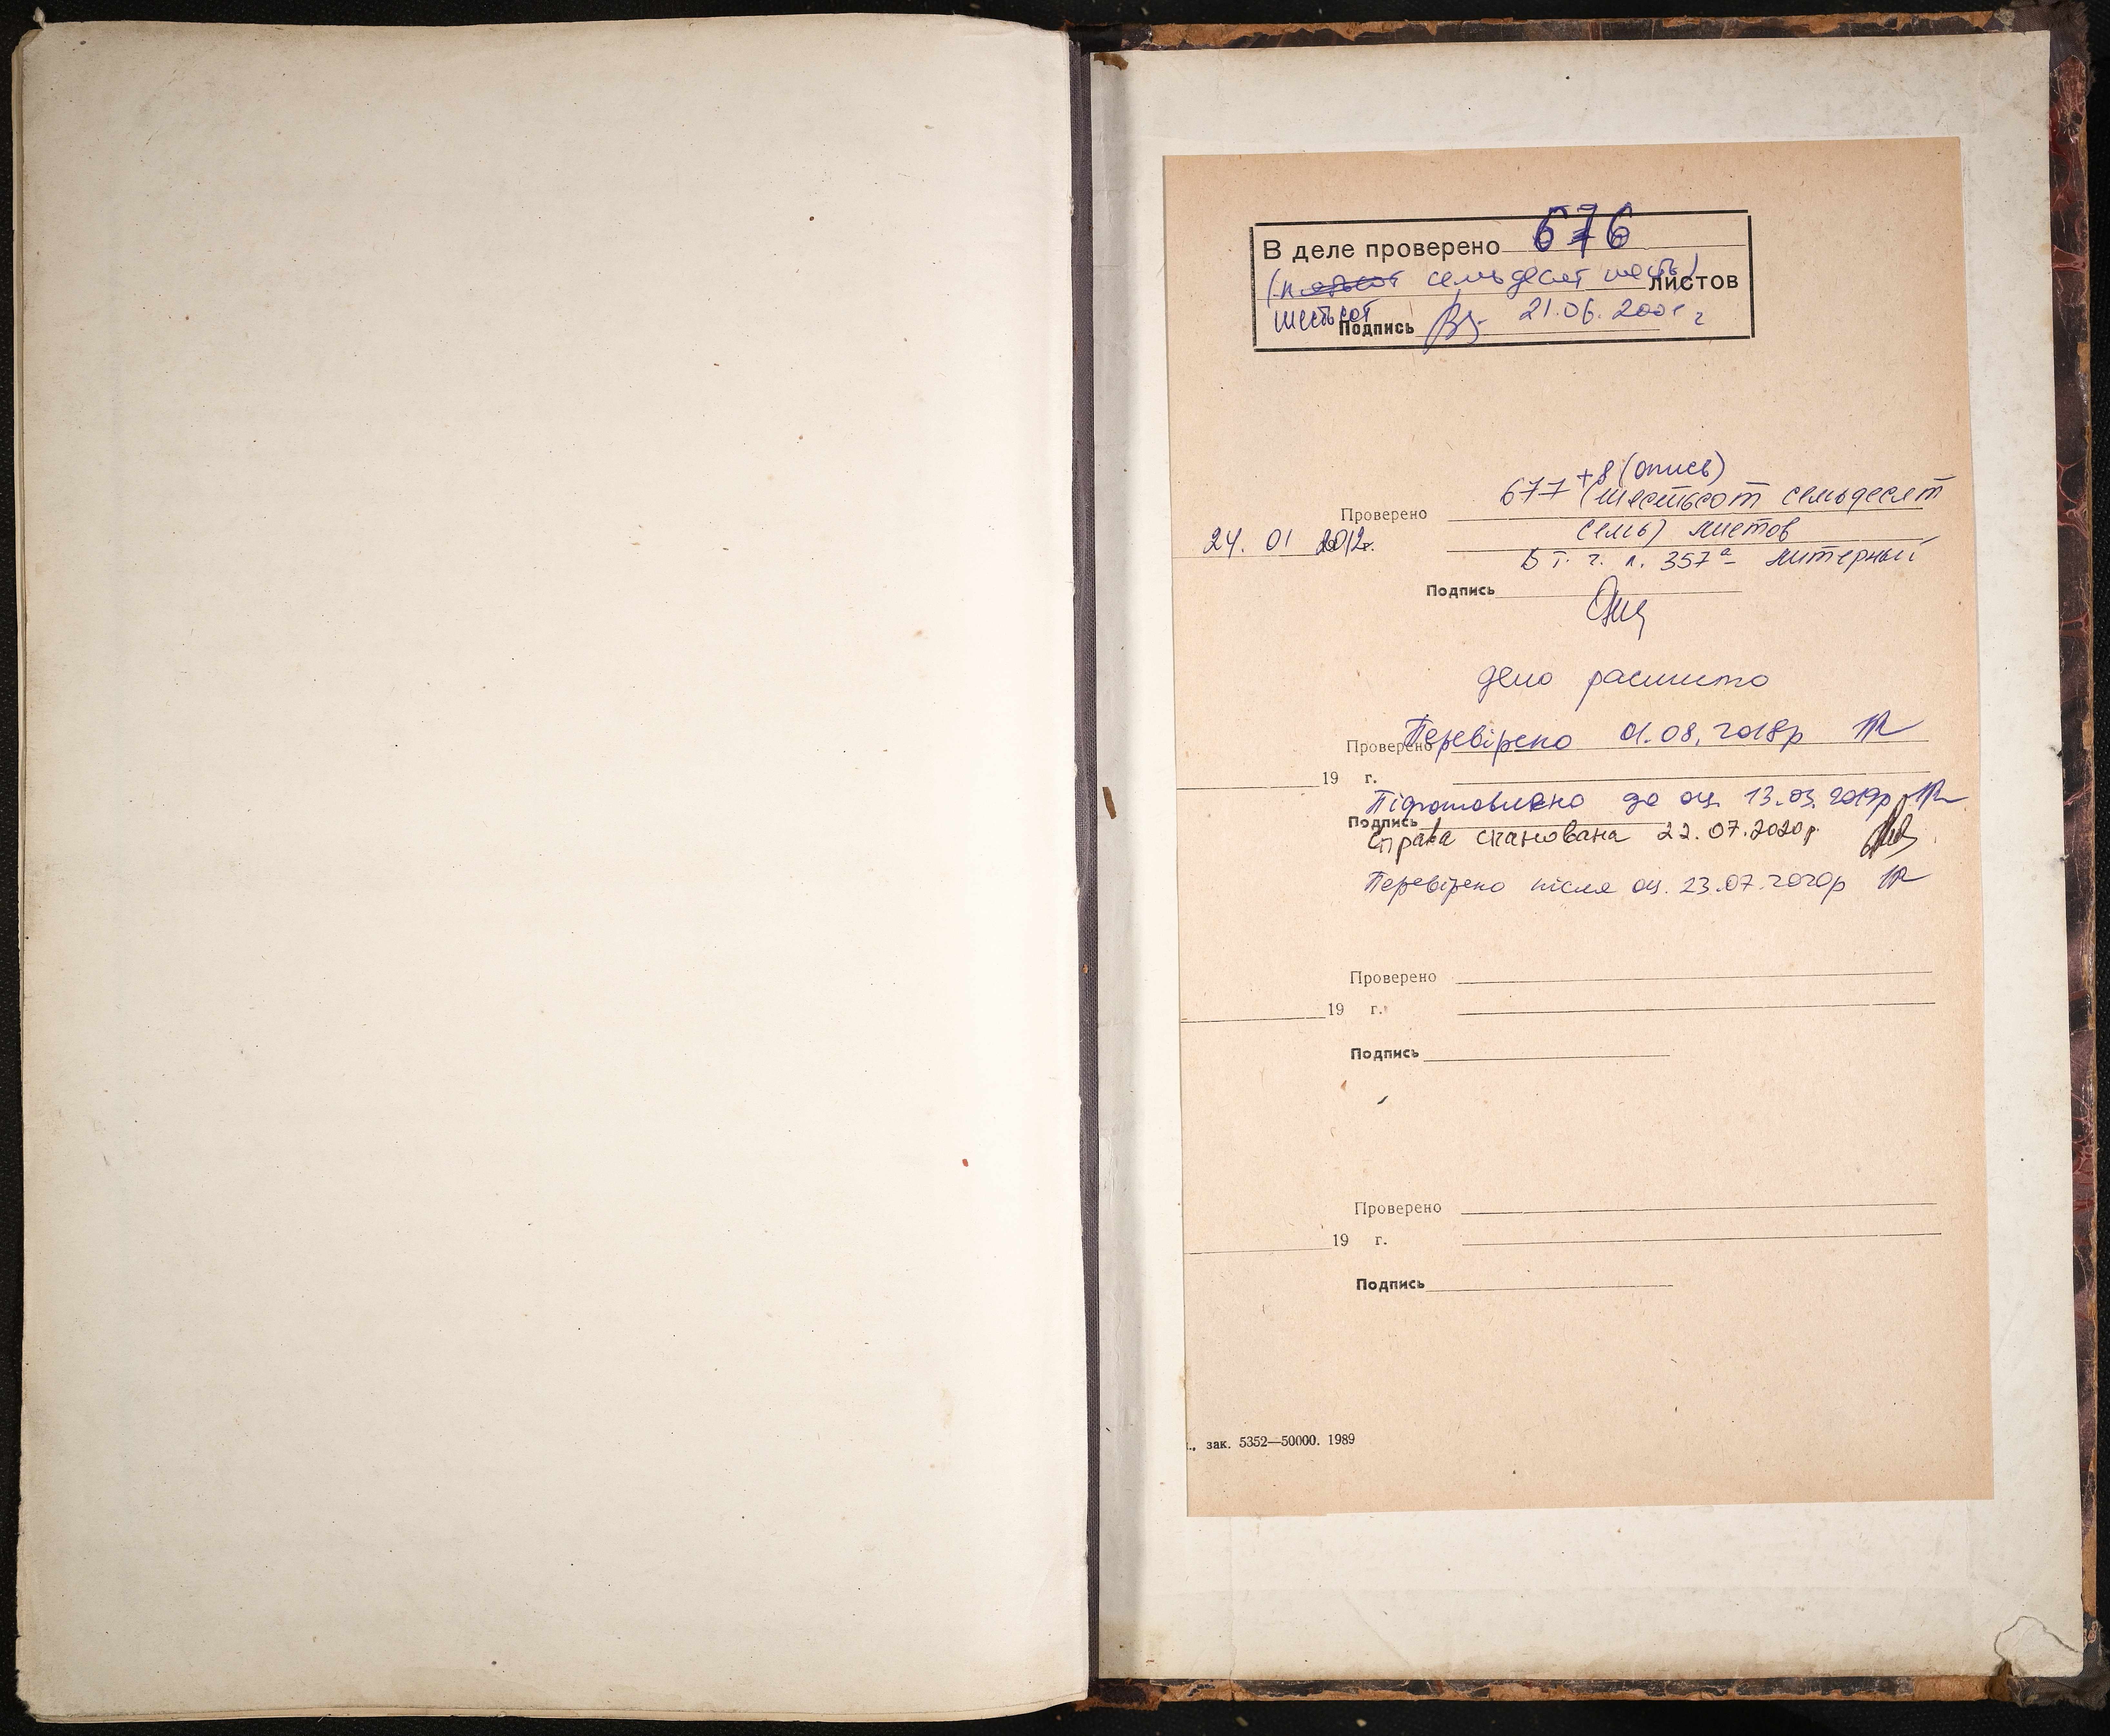 В деле проверено 676
(пятьсот семьдесят шесть) листов
шестьсот
Подпись 21.06.200 г
+8 (опись)
677 (шестьсот семьдесят
Проверено
семь) листов
24. 01 2012г.
в т. ч. л. 357а - литерный
Подпись
дело расшито
Проверено Перевірено 01.08.2018р
19 г.
Підготовлено до оц. 13.03.2019р
Подпись
Справа сканована 22.07.2020р.
Перевірено після оц. 23.07.2020р
Проверено
19 г.
Подпись
Проверено
19 г.
Подпись
., зак. 5352—50000. 1989